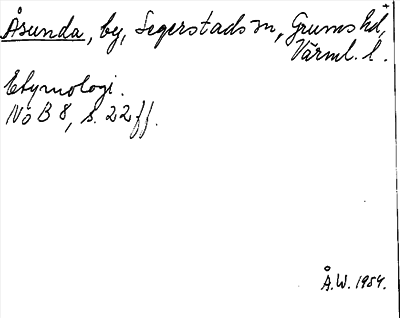 Åsunda, by, Segerstads sn, Grums hd,
Värml. l.
Etymologi.
NoB 8, s. 22 ff.
Å.W. 1954.